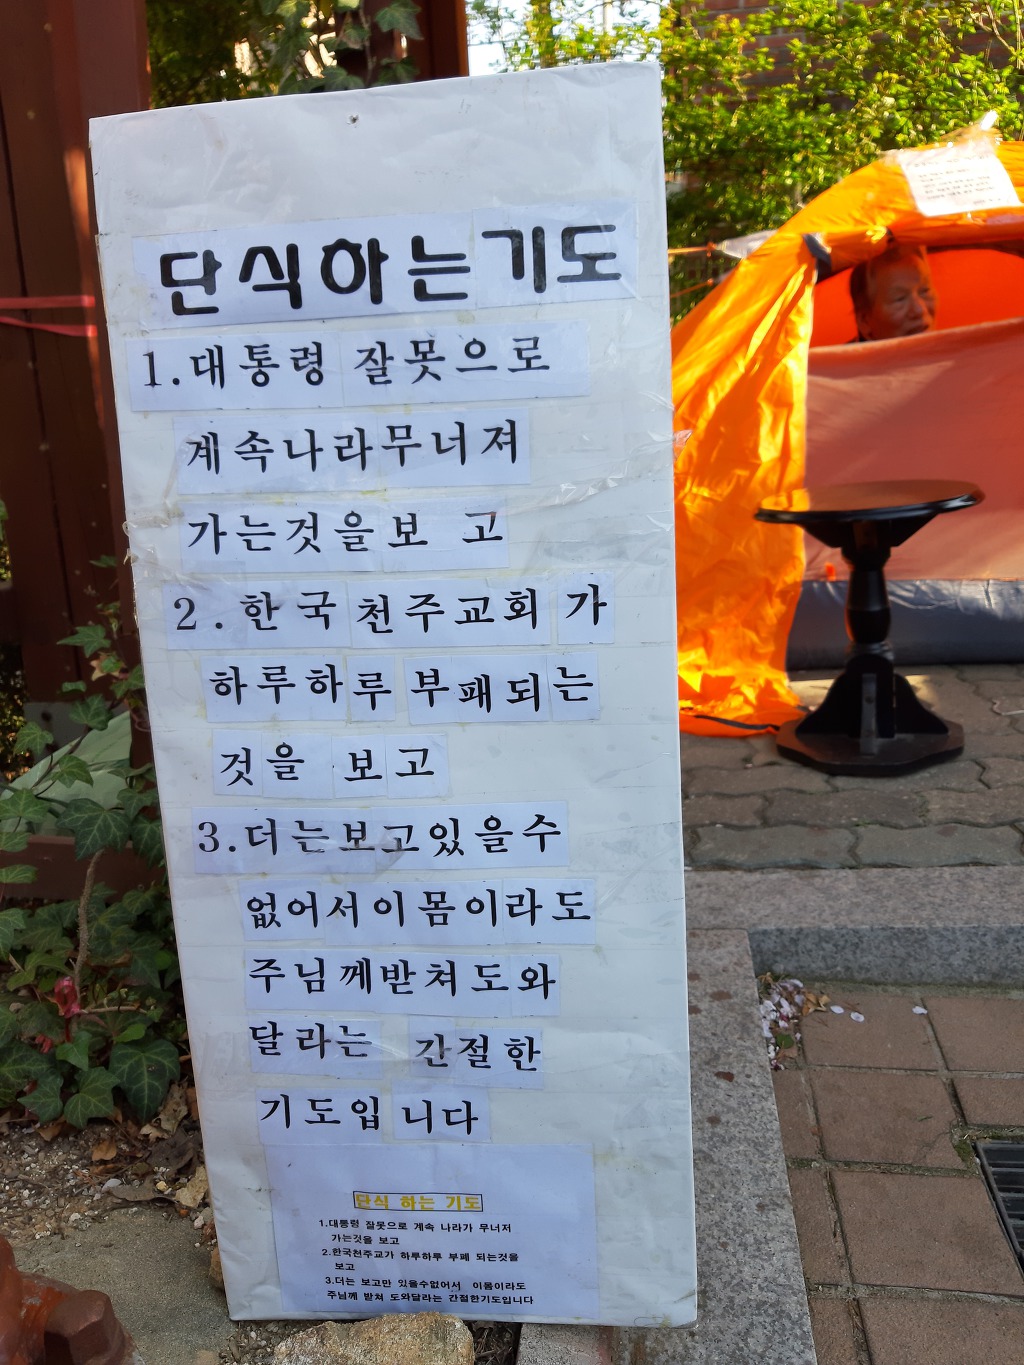 단식하는기도
1.대통령 잘못으로
계속나라무너져
가는것을보 고
2.한국천주교회 가
하루하루 부패되는
것을 보고
3.더는보고있을수
없어서이몸이라도
주님께받쳐도와
달라는 간절한
기도입니다
단식 하는 기도
1.대통령 잘못으로 계속 나라가 무너저
가는것을 보고
2.한국천주교가 하루하루 부페 되는것을
보고
3.더는 보고만 있을수없어서 이몸이라도
주님께 받쳐 도와달라는 간절한기도입니다